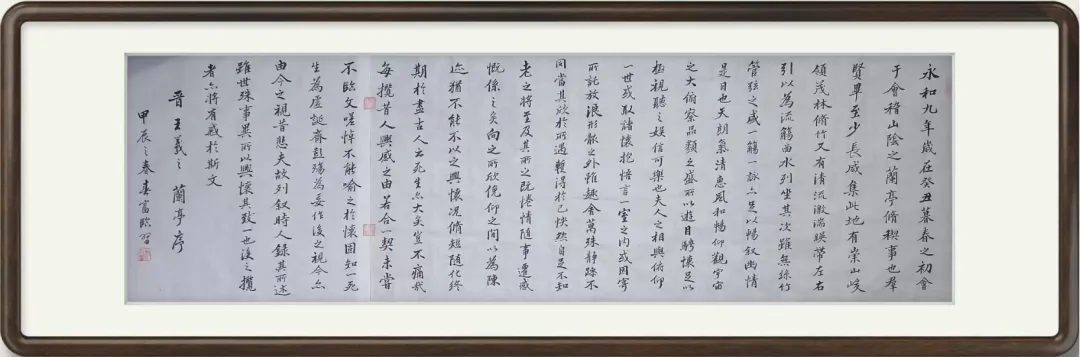 永和九年歲在癸丑暮春之初會
于會稽山陰之蘭亭脩稧事也羣
賢畢至少長咸集此地有崇山峻
領茂林脩竹又有清流激湍暎帶左右
引以為流觴曲水列坐其次雖無絲竹
管弦之盛一觴一詠亦足以暢叙幽情
是日也天朗氣清惠風和暢仰觀宇宙
之大俯察品類之盛所以遊目騁懷足以
極視聽之娛信可樂也夫人之相與俯仰
一世或取諸懷抱悟言一室之內或因寄
所託放浪形骸之外雖趣舍萬殊靜躁不
同當其欣於所遇暫得於己怏然自足不知
老之將至及其所之既惓情隨事遷感
慨係之矣向之所欣俛仰之間以為陳
迹猶不能不以之興懷況脩短隨化終
期於盡古人云死生亦大矣豈不痛哉
每攬昔人興感之由若合一契未嘗
不臨文嗟悼不能喻之於懷固知一死
生為虛誕齊彭殤為妄作後之視今亦
由今之視昔悲夫故列叙時人錄其所述
雖世殊事異所以興懷其致一也後之攬
者亦將有感於斯文
晉王羲之蘭亭序
甲辰之春富臨習